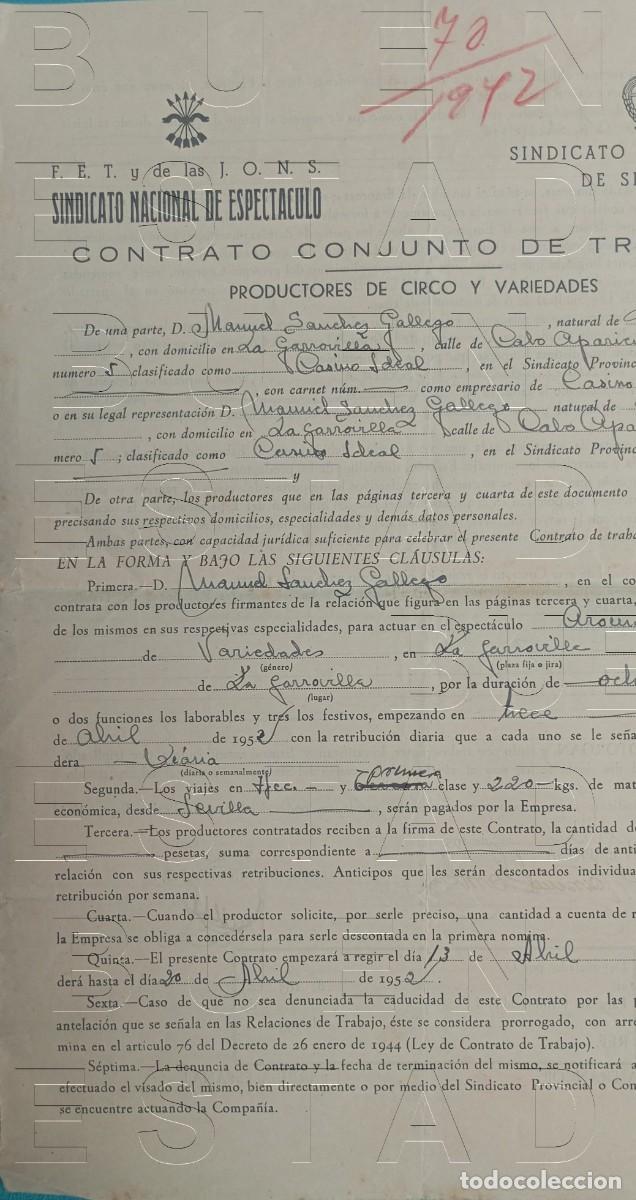 70
1942
F. E. T. y de las J. O. N. S.
SINDICATO NACIONAL DE ESPECTACULO
SINDICATO
DE
CONTRATO CONJUNTO DE TR
PRODUCTORES DE CIRCO Y VARIEDADES
De una parte, D. Manuel Sanchez Gallego, natural de
, con domicilio en La Garrovilla, calle de Calo Aparic
numero 5 clasificado como Casino Ideal, en el Sindicato Provinc
, con carnet núm. como empresario de Casino
o en su legal representación D. Manuel Sanchez Gallego natural de
, con domicilio en La Garrovilla calle de Calo Apa
mero 5; clasificado como Casino Ideal, en el Sindicato Provinc
y
De otra parte, los productores que en las páginas tercera y cuarta de este documento
precisando sus respectivos domicilios, especialidades y demás datos personales.
Ambas partes, con capacidad jurídica suficiente para celebrar el presente Contrato de traba
EN LA FORMA Y BAJO LAS SIGUIENTES CLÁUSULAS:
Primera.—D. Manuel Sanchez Gallego, en el co
contrata con los productores firmantes de la relación que figura en las páginas tercera y cuarta,
de los mismos en sus respectivas especialidades, para actuar en el espectáculo
de Variedades, en La Garrovilla
(género) (plaza fija o jira)
de La Garrovilla, por la duración de och
(lugar)
o dos funciones los laborables y tres los festivos, empezando en trece
de Abril de 1952 con la retribución diaria que a cada uno se le seña
dera Diaria
(diaria o semanalmente)
Segunda.—Los viajes en f.cc. y primera clase y 220 kgs. de mat
económica, desde Sevilla, serán pagados por la Empresa.
Tercera.—Los productores contratados reciben a la firma de este Contrato, la cantidad d
pesetas, suma correspondiente a días de anti
relación con sus respectivas retribuciones. Anticipos que les serán descontados individua
retribución por semana.
Cuarta.—Cuando el productor solicite, por serle preciso, una cantidad a cuenta de r
la Empresa se obliga a concedérsela para serle descontada en la primera nomina.
Quinta.—El presente Contrato empezará a regir el día 13 de Abril
derá hasta el día 20 de Abril de 1952.
Sexta.—Caso de que no sea denunciada la caducidad de este Contrato por las p
antelación que se señala en las Relaciones de Trabajo, éste se considera prorrogado, con arre
mina en el articulo 76 del Decreto de 26 enero de 1944 (Ley de Contrato de Trabajo).
Séptima.—La denuncia de Contrato y la fecha de terminación del mismo, se notificará a
efectuado el visado del mismo, bien directamente o por medio del Sindicato Provincial o Com
se encuentre actuando la Compañía.
BUEN
ESTAD
todocoleccion